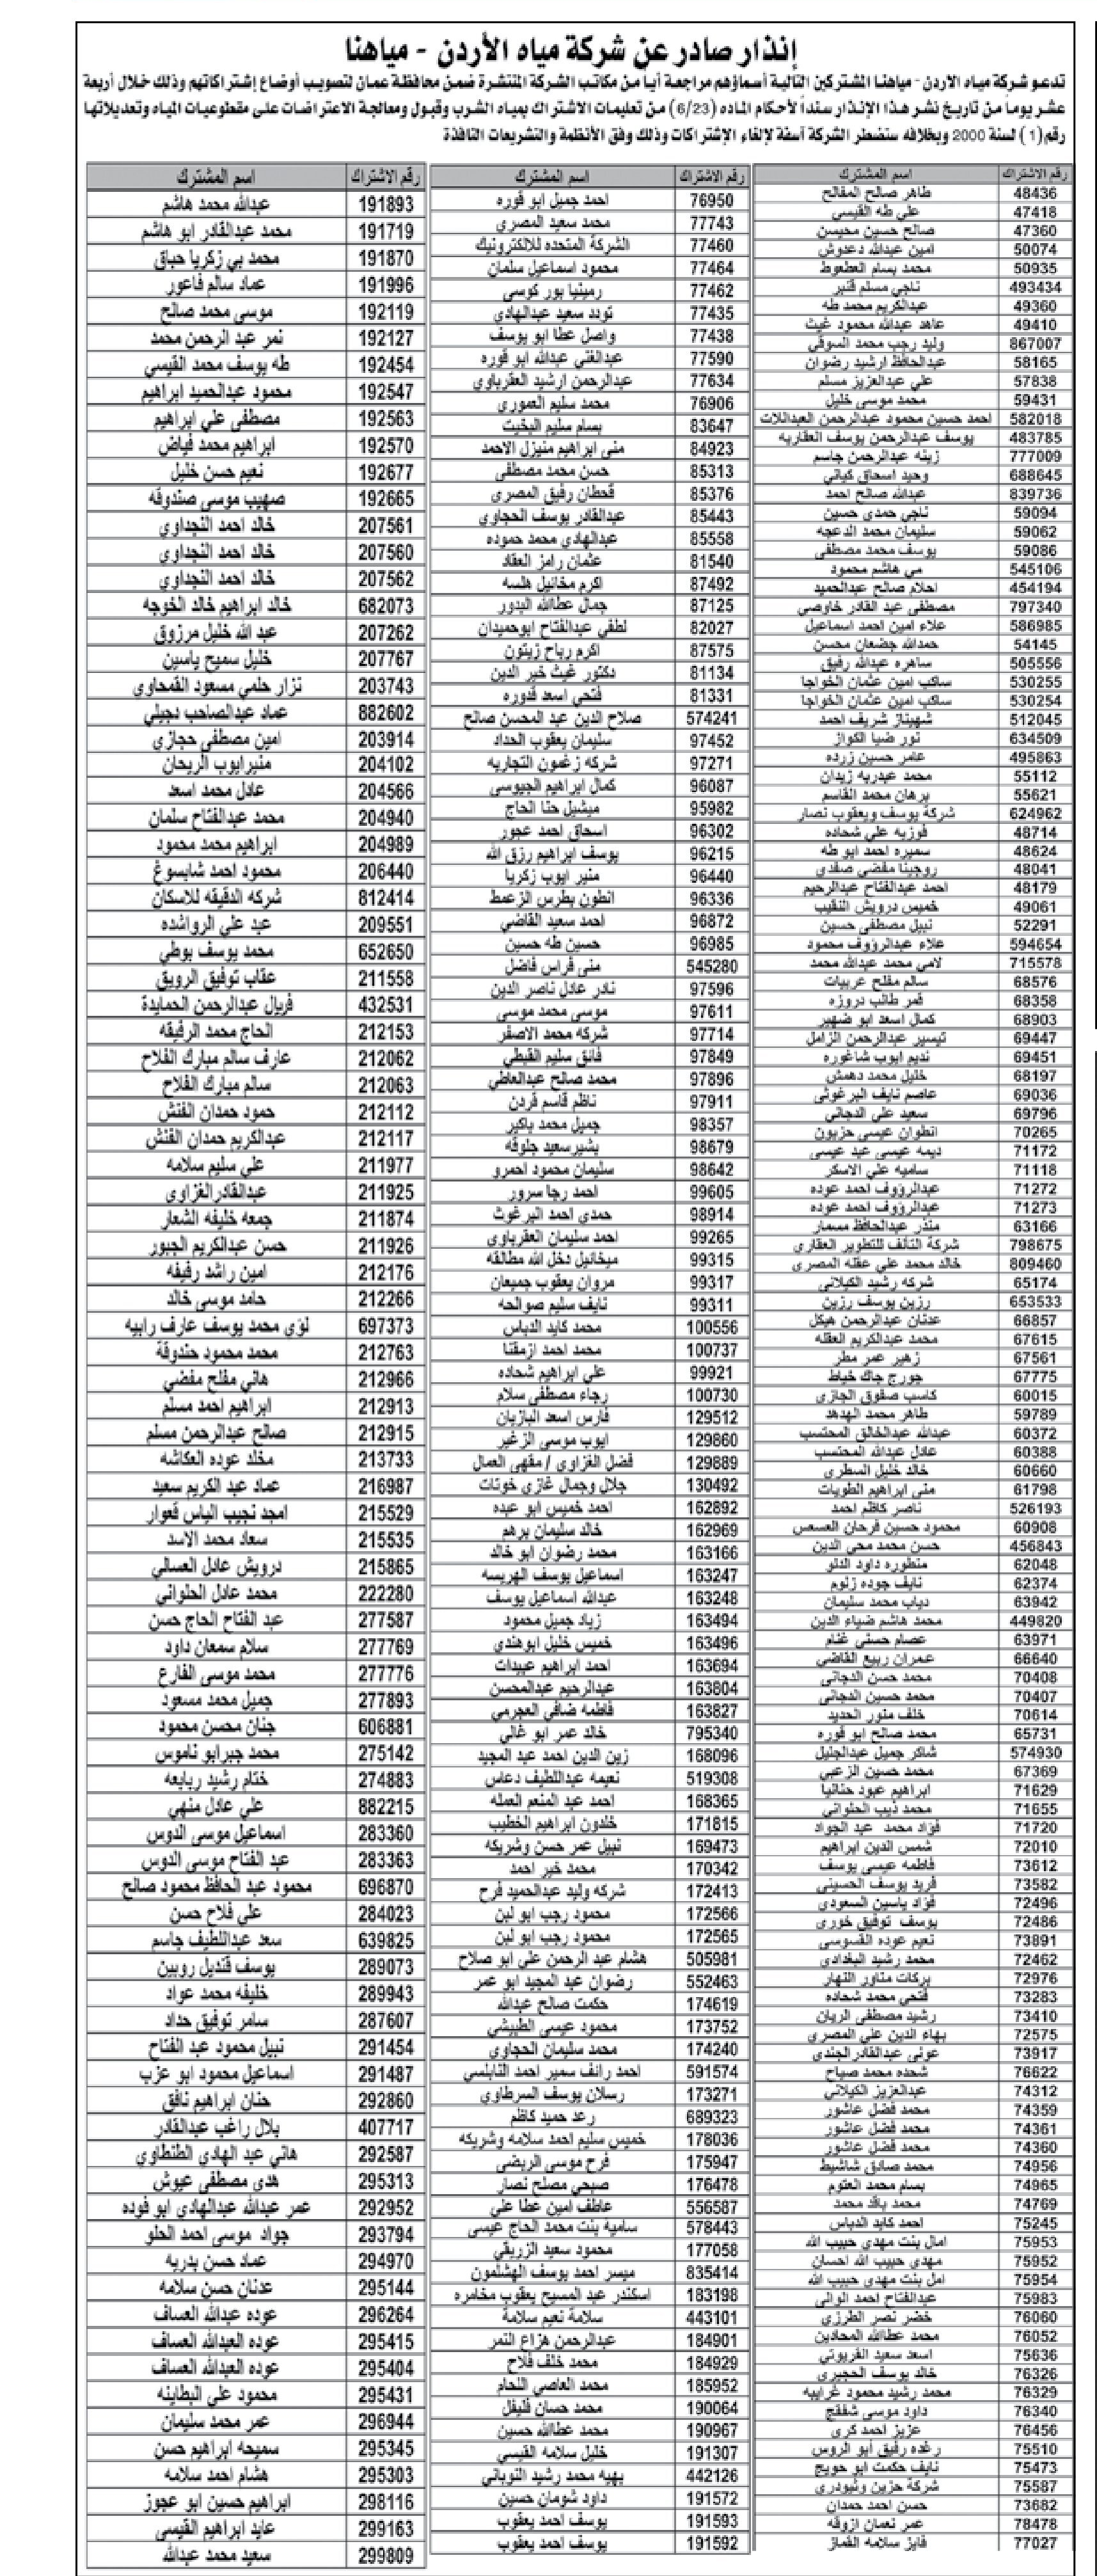 إنذار صادر عن شركة مياه الأردن - مياهنا
تدعو شركة مياه الاردن - مياهنا المشتركين التالية أسماؤهم مراجعة أياً من مكاتب الشركة المنتشرة ضمن محافظة عمان لتصويب أوضاع إشتراكاتهم وذلك خلال أربعة
عشر يوماً من تاريخ نشر هذا الإنذار سنداً لأحكام الماده (6/23) من تعليمات الاشتراك بمياه الشرب وقبول ومعالجة الاعتراضات على مقطوعيات المياه وتعديلاتها
رقم (1) لسنة 2000 وبخلافه ستضطر الشركة آسفة لإلغاء الإشتراكات وذلك وفق الأنظمة والتشريعات النافذة
رقم الاشتراك اسم المشترك
48436 طاهر صالح المفالح
47418 علي طه القيسي
47360 صالح حسين محيسن
50074 امين عبدالله دعدوش
50935 محمد بسام العطعوط
493434 ناجي مسلم قنير
49360 عبدالكريم محمد طه
49410 عاهد عبدالله محمود غيث
867007 وليد رجب محمد السوقي
58165 عبدالحافظ ارشيد رضوان
57838 علي عبدالعزيز مسلم
59431 محمد موسى خليل
582018 احمد حسين محمود عبدالرحمن العبداللات
483785 يوسف عبدالرحمن يوسف العقاربه
777009 زينه عبدالرحمن جاسم
688645 وحيد اسحاق كيالي
839736 عبدالله صالح احمد
59094 ناجي حمدي حسين
59062 سليمان محمد الدعجه
59086 يوسف محمد مصطفى
545106 مي هاشم محمود
454194 احلام صالح عبدالحميد
797340 مصطفى عبد القادر خاوصي
586985 علاء امين احمد اسماعيل
54145 حمدالله جضعان محسن
505556 ساهره عبدالله رفيق
530255 ساكب امين عثمان الخواجا
530254 ساكب امين عثمان الخواجا
512045 شهيناز شريف احمد
634509 نور ضيا الكواز
495863 عامر حسين زرده
55112 محمد عبدربه زيدان
55621 برهان محمد القاسم
624962 شركة يوسف ويعقوب نصار
48714 فوزيه علي شحاده
48624 سميره احمد ابو طه
48041 روجينا مفضي صفدي
48179 احمد عبدالفتاح عبدالرحيم
49061 خميس درويش النقيب
52291 نبيل مصطفى حسين
594654 علاء عبدالرؤوف محمود
715578 لامي محمد عبدالله محمد
68576 سالم مفلح عربيات
68358 قمر طالب دروزه
68903 كمال اسعد ابو ضهير
69447 تيسير عبدالرحمن الزامل
69451 نديم ايوب شاغوره
68197 خليل محمد دهمش
69036 عاصم نايف البرغوثي
69796 سعيد علي الدجاني
70265 انطوان عيسى حزبون
71172 ديمه عيسى عبد عيسى
71118 ساميه علي الاسكر
71272 عبدالرؤوف احمد عوده
71273 عبدالرؤوف احمد عوده
63166 منذر عبدالحافظ مسمار
798675 شركة التألف للتطوير العقاري
809460 خالد محمد علي عقله المصري
65174 شركه رشيد الكيلاني
653533 رزين يوسف رزين
66857 عدنان عبدالرحمن هيكل
67615 محمد عبدالكريم العقله
67561 زهير عمر مطر
67775 جورج جاك خياط
60015 كاسب صفوق الجازي
59789 طاهر محمد الهدهد
60372 عبدالله عبدالخالق المحتسب
60388 عادل عبدالله المحتسب
60660 خالد خليل السطري
61798 منى ابراهيم الطويات
526193 ناصر كاظم احمد
60908 محمود حسين فرحان العسعس
456843 حسن محمد محي الدين
62048 منطوره داود الدلو
62374 نايف جوده زلوم
63942 دياب محمد سليمان
449820 محمد هاشم ضياء الدين
63971 عصام حسني غنام
66640 عمران ربيع القاضي
70408 محمد حسن الدجاني
70407 محمد حسين الدجاني
70614 خلف منور الحديد
65731 محمد صالح ابو قوره
574930 شاكر جميل عبدالجليل
67369 محمد حسين الزعبي
71629 ابراهيم عبود حنانيا
71655 محمد ذيب الحلواني
71720 فؤاد محمد عبد الجواد
72010 شمس الدين ابراهيم
73612 فاطمه عيسى يوسف
73582 فريد يوسف الحسيني
72496 فؤاد ياسين السعودي
72486 يوسف توفيق خوري
73891 نعيم عوده القسوسي
72462 محمد رشيد البغدادي
72976 بركات مناور النهار
73283 فتحي محمد شحاده
73410 رشيد مصطفى الريان
72575 بهاء الدين علي المصري
73917 عوني عبدالقادر الجندي
76622 شحده محمد صباح
74312 عبدالعزيز الكيلاني
74359 محمد فضل عاشور
74361 محمد فضل عاشور
74360 محمد فضل عاشور
74956 محمد صادق شاشيط
74965 بسام محمد العتوم
74769 محمد باقد محمد
75245 احمد كايد الدباس
75953 امال بنت مهدي حبيب الله
75952 مهدي حبيب الله احسان
75954 امل بنت مهدي حبيب الله
75983 عبدالفتاح احمد الوالي
76060 خضر نصر الطرزي
76052 محمد عطاالله المحادين
75636 اسعد سعيد القريوتي
76326 خالد يوسف الحجيري
76329 محمد رشيد محمود غرايبه
76340 داود موسى شفقج
76456 عزيز احمد كري
75510 رغده رفيق أبو الروس
75473 نايف حكمت ابو حويج
75587 شركة حزين وثيودري
73682 حسن احمد حمدان
78478 عمر نعمان ازوقه
77027 فايز سلامه القماز
رقم الاشتراك اسم المشترك
76950 احمد جميل ابو قوره
77743 محمد سعيد المصري
77460 الشركة المتحده للالكترونيك
77464 محمود اسماعيل سلمان
77462 رمينيا بور كوسي
77435 تودد سعيد عبدالهادي
77438 واصل عطا ابو يوسف
77590 عبدالغني عبدالله ابو قوره
77634 عبدالرحمن ارشيد العقرباوي
76906 محمد سليم العموري
83647 بسام سليم البخيت
84923 منى ابراهيم منيزل الاحمد
85313 حسن محمد مصطفى
85376 قحطان رفيق المصري
85443 عبدالقادر يوسف الحجاوي
85558 عبدالهادي محمد حموده
81540 عثمان رامز العقاد
87492 اكرم مخائيل هلسه
87125 جمال عطاالله البدور
82027 لطفي عبدالفتاح ابوحميدان
87575 اكرم رباح زيتون
81134 دكتور غيث خير الدين
81331 فتحي اسعد قدوره
574241 صلاح الدين عبد المحسن صالح
97452 سليمان يعقوب الحداد
97271 شركه زغمون التجاريه
96087 كمال ابراهيم الجيوسي
95982 ميشيل حنا الحاج
96302 اسحاق احمد عجور
96215 يوسف ابراهيم رزق الله
96440 منير ايوب زكريا
96336 انطون بطرس الزعمط
96872 احمد سعيد القاضي
96985 حسين طه حسين
545280 منى فراس فاضل
97596 نادر عادل ناصر الدين
97611 موسى محمد موسى
97714 شركه محمد الاصفر
97849 فائق سليم القبطي
97896 محمد صالح عبدالعاطي
97911 ناظم قاسم قردن
98357 جميل محمد باكير
98679 بشير سعيد جلوقه
98642 سليمان محمود احمرو
99605 احمد رجا سرور
98914 حمدي احمد البرغوث
99265 احمد سليمان العقرباوي
99315 ميخائيل دخل الله مطالقه
99317 مروان يعقوب جميعان
99311 نايف سليم صوالحه
100556 محمد كايد الدباس
100737 محمد احمد ازمقنا
99921 علي ابراهيم شحاده
100730 رجاء مصطفى سلام
129512 فارس اسعد البازيان
129860 ايوب موسى الزغير
129889 فضل الغزاوي / مقهى العمال
130492 جلال وجمال غازي خوتات
162892 احمد خميس ابو عبده
162969 خالد سليمان برهم
163166 محمد رضوان ابو خالد
163247 اسماعيل يوسف الهريسه
163248 عبدالله اسماعيل يوسف
163494 زياد جميل محمود
163496 خميس خليل ابوهندي
163694 احمد ابراهيم عبيدات
163804 عبدالرحيم عبدالمحسن
163827 فاطمه ضافي العجرمي
795340 خالد عمر ابو غالي
168096 زين الدين احمد عبد المجيد
519308 نعيمه عبداللطيف دعاس
168365 احمد عبد المنعم العمله
171815 خلدون ابراهيم الخطيب
169473 نبيل عمر حسن وشريكه
170342 محمد خير احمد
172413 شركه وليد عبدالحميد فرح
172566 محمود رجب ابو لبن
172565 محمود رجب ابو لبن
505981 هشام عبد الرحمن علي ابو صلاح
552463 رضوان عبد المجيد ابو عمر
174619 حكمت صالح عبدالله
173752 محمود عيسى الطبيشي
174240 محمد سليمان الحجاوي
591574 احمد رائف سمير احمد النابلسي
173271 رسلان يوسف السرطاوي
689323 رعد حميد كاظم
178036 خميس سليم احمد سلامه وشريكه
175947 فرح موسى الريضي
176478 صبحي مصلح نصار
556587 عاطف امين عطا علي
578443 ساميه بنت محمد الحاج عيسى
177058 محمود سعيد الزريقي
835414 ميسر احمد يوسف الهشلمون
183198 اسكندر عبد المسيح يعقوب مخامره
443101 سلامة نعيم سلامة
184901 عبدالرحمن هزاع النمر
184929 محمد خلف فلاح
185952 محمد العاصي اللحام
190064 محمد حسان فليفل
190967 محمد عطاالله حسين
191307 خليل سلامه القيسي
442126 بهيه محمد رشيد النوباني
191572 داود شومان حسين
191593 يوسف احمد يعقوب
191592 يوسف احمد يعقوب
رقم الاشتراك اسم المشترك
191893 عبدالله محمد هاشم
191719 محمد عبدالقادر ابو هاشم
191870 محمد بي زكريا حباق
191996 عماد سالم فاعور
192119 موسى محمد صالح
192127 نمر عبد الرحمن محمد
192454 طه يوسف محمد القيسي
192547 محمود عبدالحميد ابراهيم
192563 مصطفى علي ابراهيم
192570 ابراهيم محمد فياض
192677 نعيم حسن خليل
192665 صهيب موسى صندوقه
207561 خالد احمد النجداوي
207560 خالد احمد النجداوي
207562 خالد احمد النجداوي
682073 خالد ابراهيم خالد الخوجه
207262 عبد الله خليل مرزوق
207767 خليل سميح ياسين
203743 نزار حلمي مسعود القمحاوي
882602 عماد عبدالصاحب دجيلي
203914 امين مصطفى حجازي
204102 منيرايوب الريحان
204566 عادل محمد اسعد
204940 محمد عبدالفتاح سلمان
204989 ابراهيم محمد محمود
206440 محمود احمد شابسوغ
812414 شركه الدقيقه للاسكان
209551 عبد علي الرواشده
652650 محمد يوسف بوطي
211558 عقاب توفيق الرويق
432531 فريال عبدالرحمن الحمايدة
212153 الحاج محمد الرفيقه
212062 عارف سالم مبارك الفلاح
212063 سالم مبارك الفلاح
212112 حمود حمدان الفنش
212117 عبدالكريم حمدان الفنش
211977 علي سليم سلامه
211925 عبدالقادر الغزاوي
211874 جمعه خليفه الشعار
211926 حسن عبدالكريم الجبور
212176 امين راشد رفيفه
212266 حامد موسى خالد
697373 لؤي محمد يوسف عارف رابيه
212763 محمد محمود حندوقة
212966 هاني مفلح مفضي
212913 ابراهيم احمد مسلم
212915 صالح عبدالرحمن مسلم
213733 مخلد عوده العكاشه
216987 عماد عبد الكريم سعيد
215529 امجد نجيب الياس قعوار
215535 سعاد محمد الاسد
215865 درويش عادل العسالي
222280 محمد عادل الحلواني
277587 عبد الفتاح الحاج حسن
277769 سلام سمعان داود
277776 محمد موسى الفارع
277893 جميل محمد مسعود
606881 جنان محسن محمود
275142 محمد جبرابو ناموس
274883 ختام رشيد ربابعه
882215 علي عادل منهي
283360 اسماعيل موسى الدوس
283363 عبد الفتاح موسى الدوس
696870 محمود عبد الحافظ محمود صالح
284023 علي فلاح حسن
639825 سعد عبداللطيف جاسم
289073 يوسف قنديل روبين
289943 خليفه محمد عواد
287607 سامر توفيق حداد
291454 نبيل محمود عبد الفتاح
291487 اسماعيل محمود ابو عزب
292860 حنان ابراهيم نافق
407717 بلال راغب عبدالقادر
292587 هاني عبد الهادي الطنطاوي
295313 هدى مصطفى عيوش
292952 عمر عبدالله عبدالهادي ابو فوده
293794 جواد موسى احمد الحلو
294970 عماد حسن بدريه
295144 عدنان حسن سلامه
296264 عوده عبدالله العساف
295415 عوده العبدالله العساف
295404 عوده العبدالله العساف
295431 محمود علي البطاينه
296944 عمر محمد سليمان
295345 سميحه ابراهيم حسن
295303 هشام احمد سلامه
298116 ابراهيم حسين ابو عجوز
299163 عايد ابراهيم القيسي
299809 سعيد محمد عبدالله